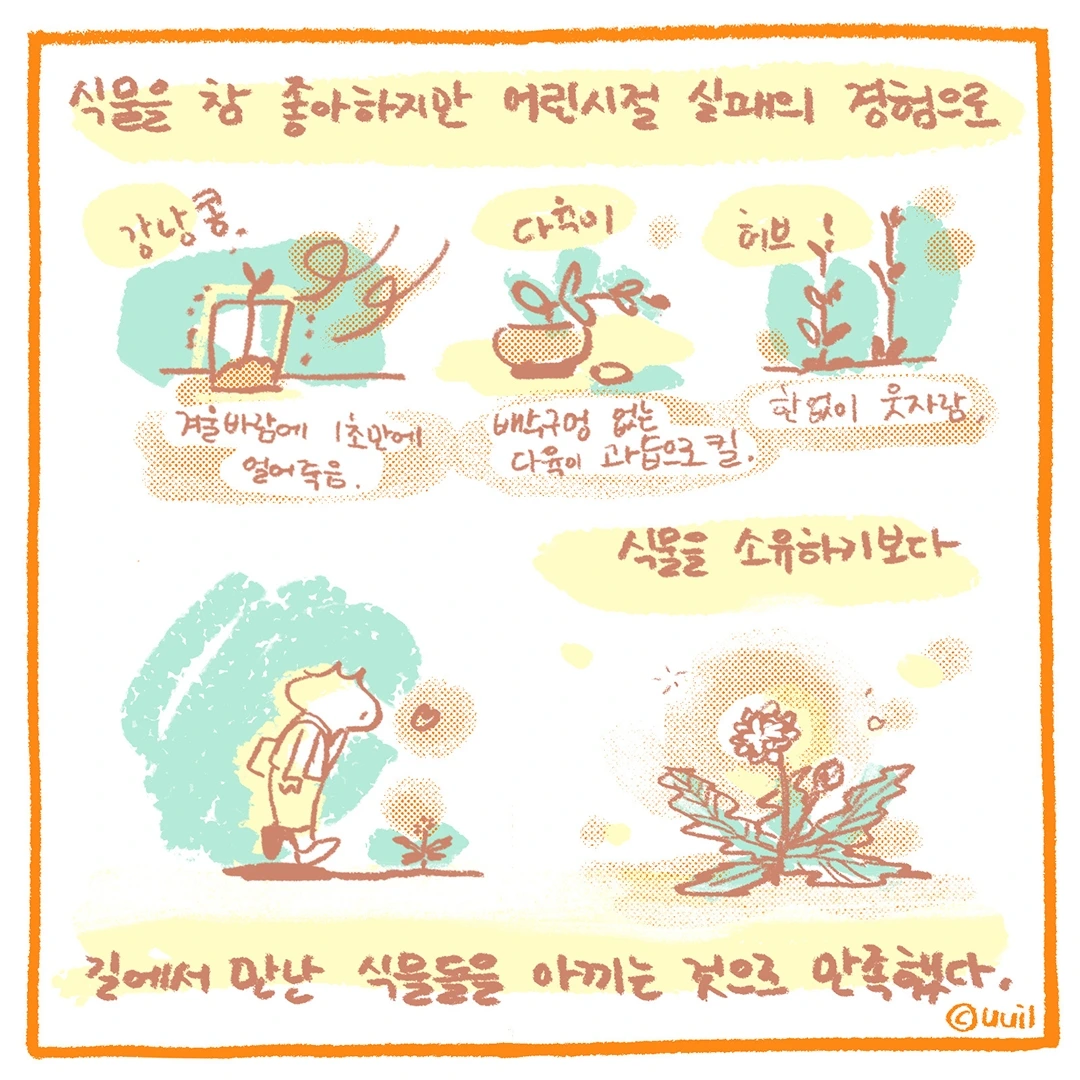 식물을 참 좋아하지만 어린시절 실패의 경험으로
강낭콩.
다육이
허브
겨울바람에 1초만에
얼어죽음.
배수구멍 없는
다육이 과습으로 킬.
한없이 웃자람.
식물을 소유하기보다
길에서 만난 식물들을 아끼는 것으로 만족했다.
©uuil